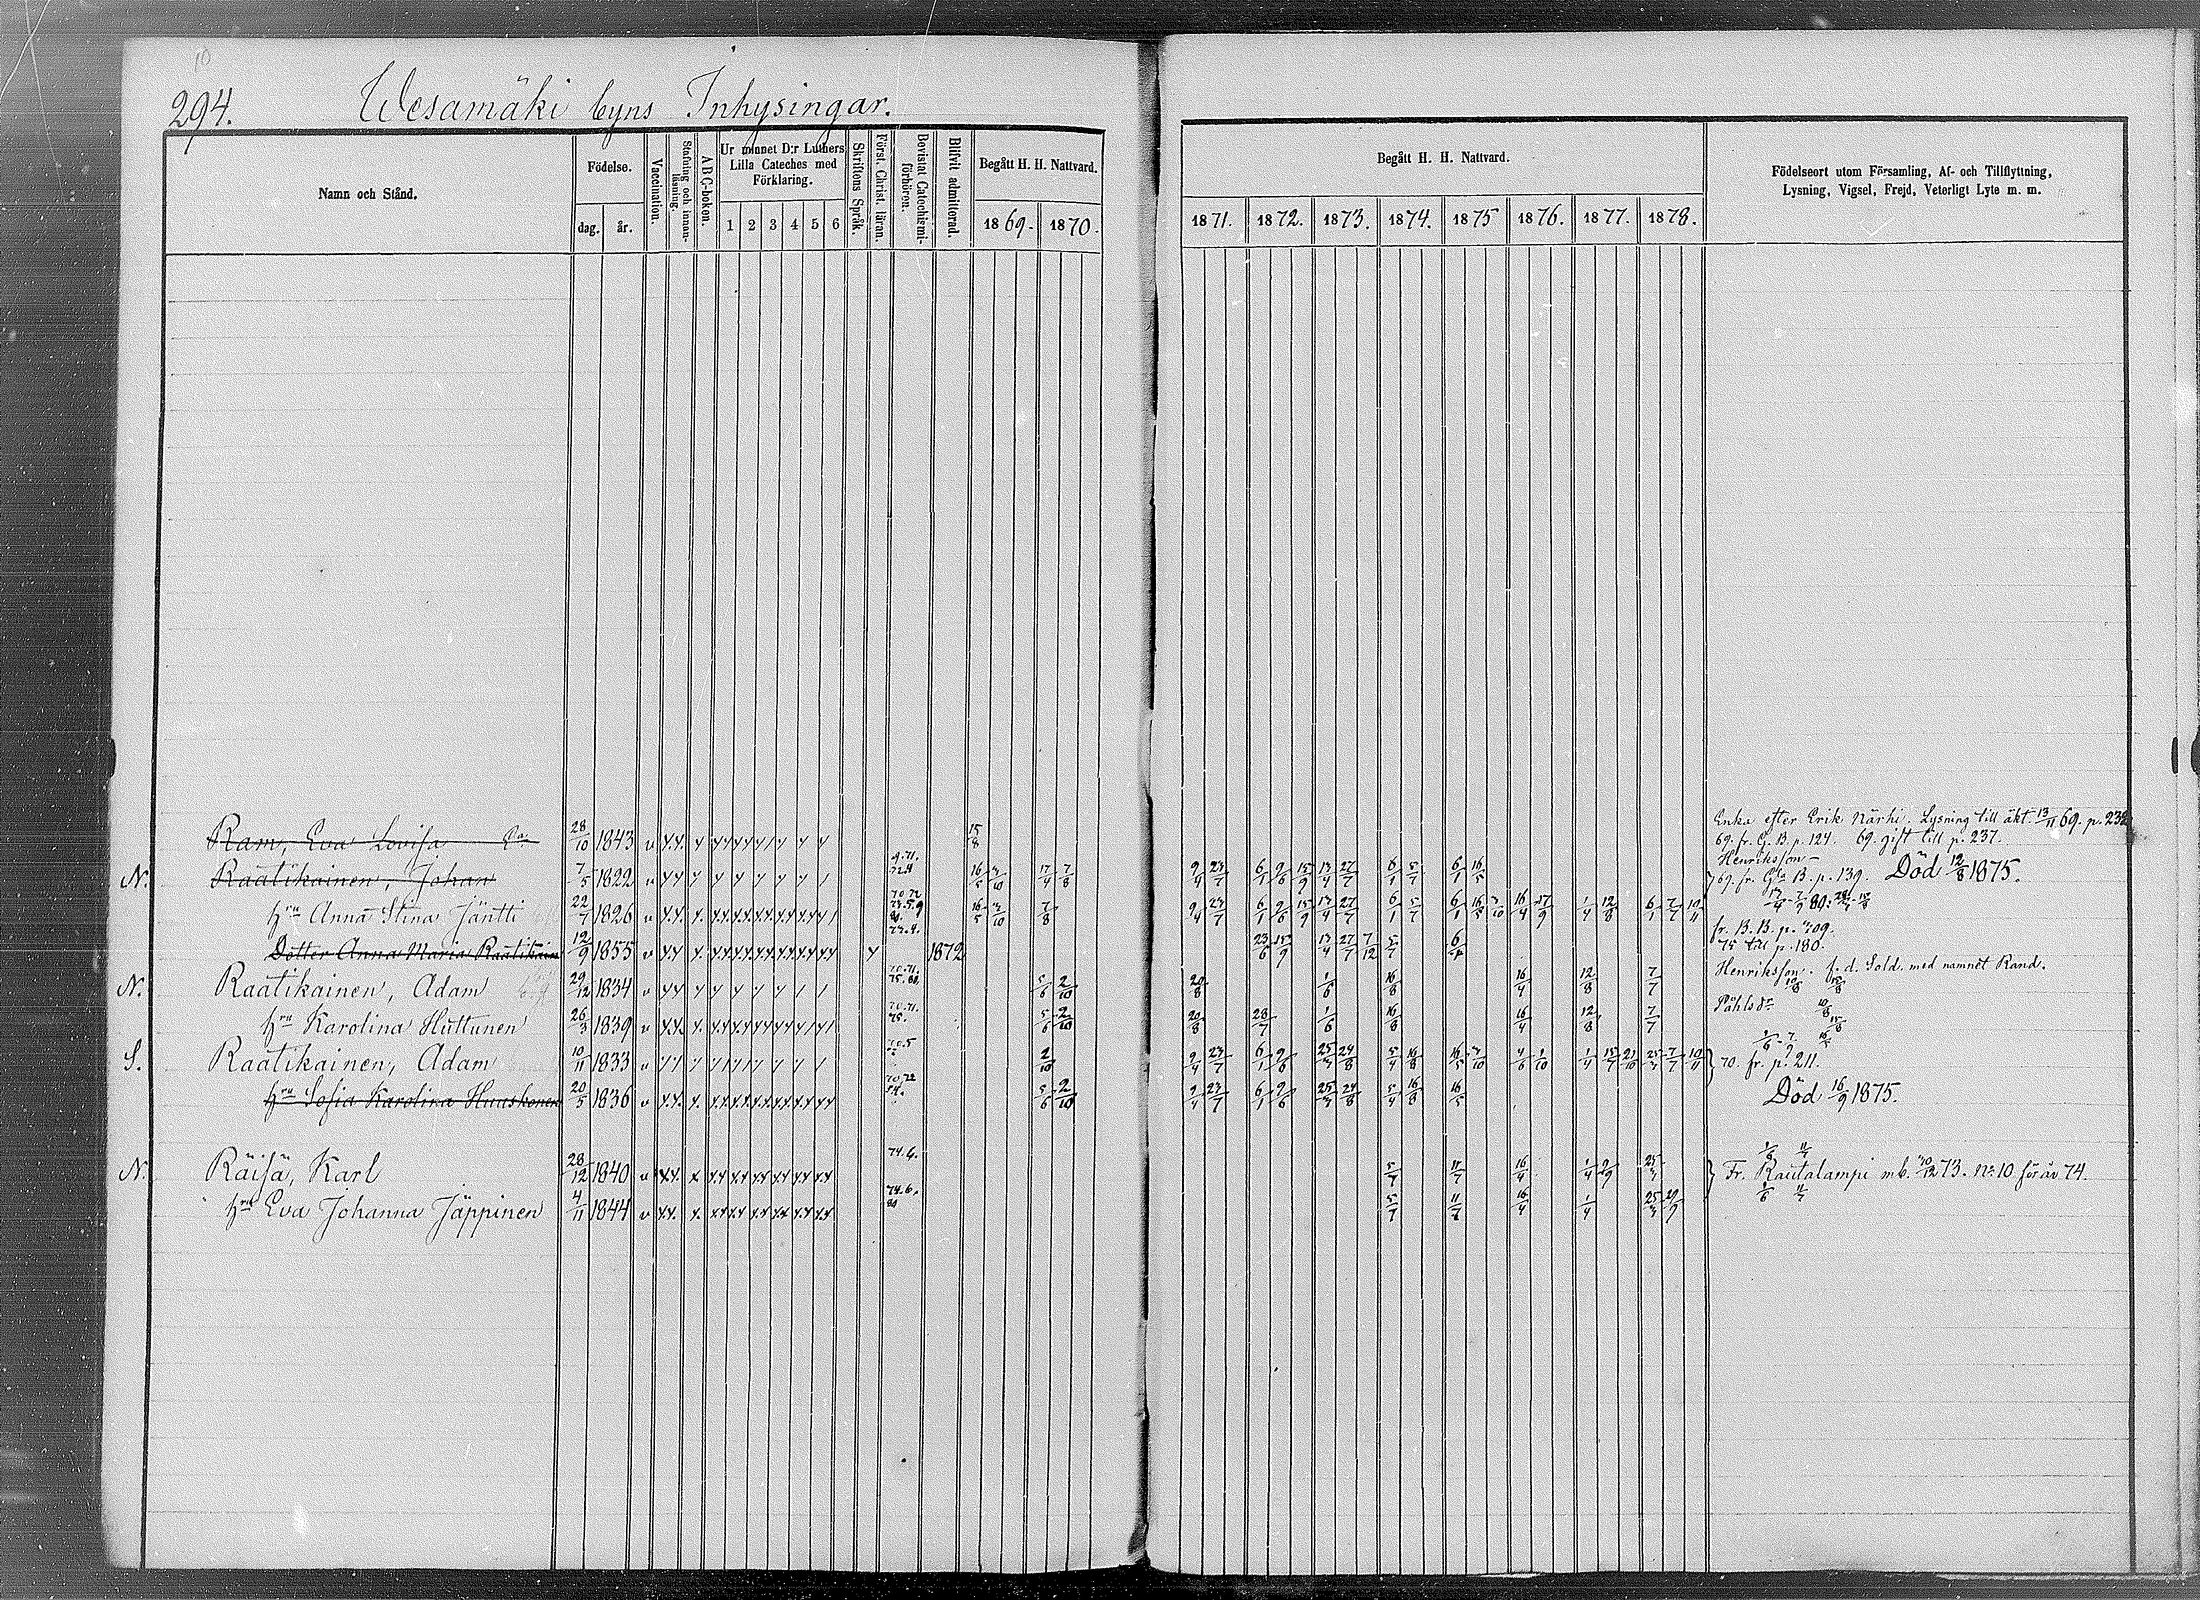 10
294. Wesamäki byns Inhysingar.
Namn och Stånd. Födelse. dag. år. Vaccination. Stafning och innanläsning. ABC-boken. Ur minnet D:r Luthers Lilla Cateches med Förklaring. 1 2 3 4 5 6 Skriftens Språk. Först. Christ. läran. Bevistat Catechismiförhören. Blifvit admitterad. Begått H. H. Nattvard. 1869. 1870.
Begått H. H. Nattvard. 1871. 1872. 1873. 1874. 1875 1876. 1877. 1878. Födelseort utom Församling, Af- och Tillflyttning, Lysning, Vigsel, Frejd, Veterligt Lyte m. m.
Ram, Eva Lovisa 28/10 1843 15/8 Enka efter Erik Närhi. Lysning till äkt. 13/11 69. p. 238
69. fr. G. B. p. 124. 69. gift till p. 237.
N. Raatikainen, Johan 7/5 1822 16/5 17/4 7/8 9/4 23/7 6/1 9/6 15/9 13/4 27/7 6/1 5/7 6/1 16/5 Henriksson
69. fr. Gla B. p. 139. Död 12/8 1875.
hru Anna Stina Jäntti 22/7 1826 16/5 7/8 9/4 23/7 6/1 9/6 15/9 13/4 27/7 6/1 5/7 6/1 16/5 16/4 17/9 1/4 12/8 6/1 7/7 10/11
Dotter Anna Maria Raatikain 12/9 1855 1872 23/6 15/9 13/4 27/7 7/12 5/7 fr. B. B. p. 709.
75 till p. 180.
N. Raatikainen, Adam 29/12 1834 5/6 2/10 20/8 1/6 16/8 16/4 12/8 7/7 Henriksson. f. d. Sold. med namnet Rand.
hru Karolina Huttunen 26/3 1839 5/6 2/10 20/8 28/7 1/6 16/8 16/4 12/8 7/7 Påhlsdr
S. Raatikainen, Adam 10/11 1833 2/10 9/4 23/7 6/1 9/6 25/3 24/8 5/4 16/8 16/5 1/4 7/7 10/11 70. fr. p. 211.
hru Sofia Karolina Huuskonen 20/5 1836 5/6 2/10 9/4 23/7 6/1 9/6 25/3 24/8 5/4 16/8 16/5 Död 16/9 1875.
N. Räisä, Karl 28/12 1840 74.6. 5/7 11/7 16/4 1/4 25/3 Fr. Rautalampi mb. 30/12 73. No 10 för år 74.
hru Eva Johanna Jäppinen 4/11 1844 74.6. 5/7 11/7 16/4 1/4 25/3